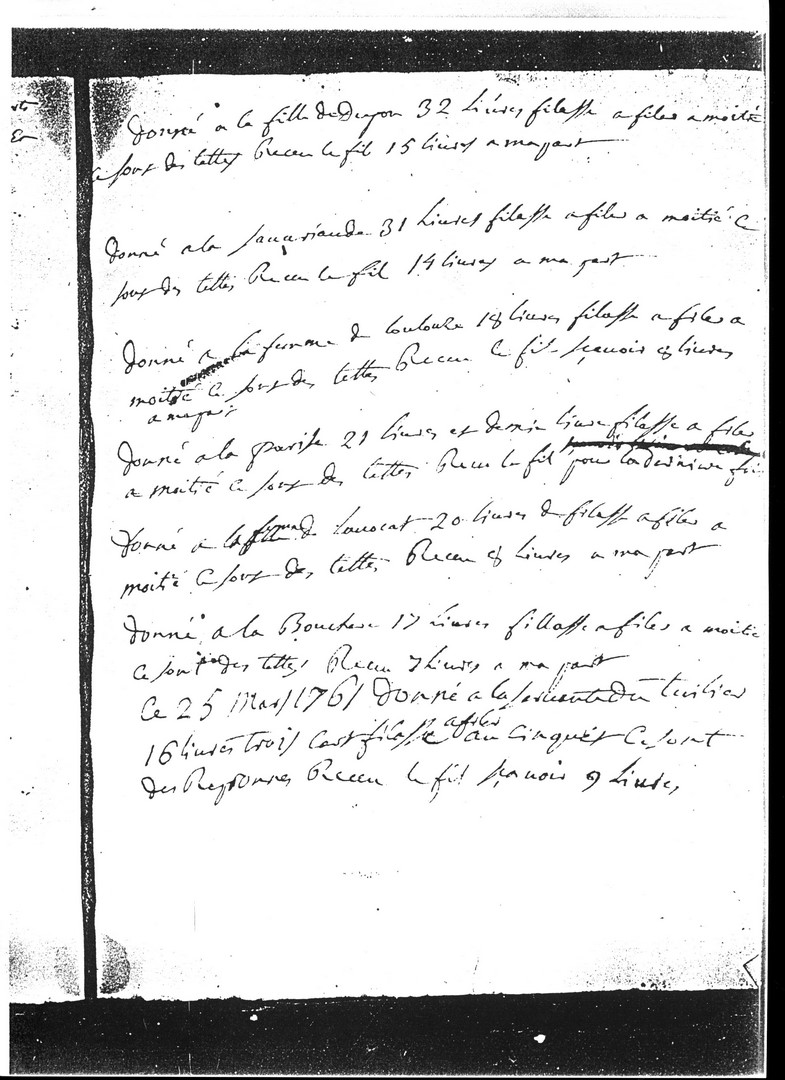 donné a la fille de Dragon 32 livres filasse a filer a moitié
ce sont des tettes Receu le fil 15 livres a ma part
donné a la 31 livres filasse a filer a moitié ce
sont des tettes Receu le fil 14 livres a ma part
donné a la femme de toulouse 18 livres filasse a filer a
moitié ce sont des tettes Receu le fil sçauoir 8 liures
a ma part
donné a la parise 21 liures et demie liure filasse a filer
a moitié ce sont des tettes Receu le fil pour la derniere
donné a la femme de lauocat 20 liures de filasse a filer a
moitié Ce sont des tettes Receu 8 liures a ma part
donné a la Bouchere 17 liures fillasse a filer a moitie
ce sont des tettes Receu 7 liures a ma part
Ce 25 Mars 1761 Donné a la seruante du tuilier
16 liures trois cart filasse a filer au cinquiet Ce sont
des Repronnes Receu le fil sçauoir 9 liures